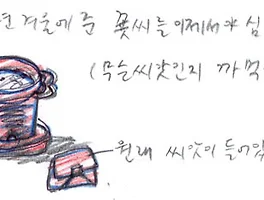 년 겨울에 준 꽃씨를 이제서야 심
(무슨씨앗인지 까먹
원래 씨앗이 들어있